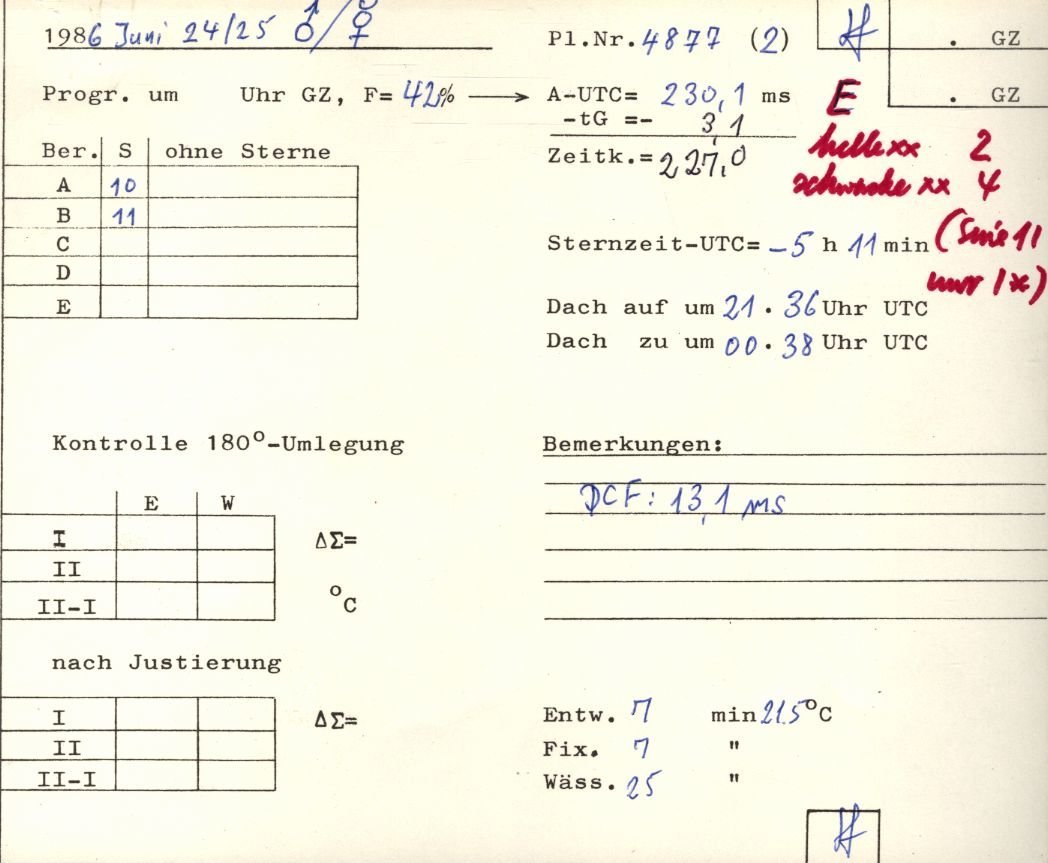 1986 Juni 24/25 ♂/☿
Pl.Nr. 4877 (2)
. GZ
Progr. um Uhr GZ, F= 42% → A-UTC= 230,1 ms
E
. GZ
-tG =- 3,1
Zeitk.= 227,0
helle xx 2
schwache xx 4
Ber. S ohne Sterne
A 10
B 11
C
D
E
Sternzeit-UTC= -5 h 11 min
(Serie 11
nur 1x)
Dach auf um 21 . 36 Uhr UTC
Dach zu um 00 . 38 Uhr UTC
Kontrolle 180°-Umlegung
E W
I
II
II-I
ΔΣ=
°C
Bemerkungen:
DCF: 13,1 ms
nach Justierung
I
II
II-I
ΔΣ=
Entw. 7 min 21.5°C
Fix. 7 "
Wäss. 25 "